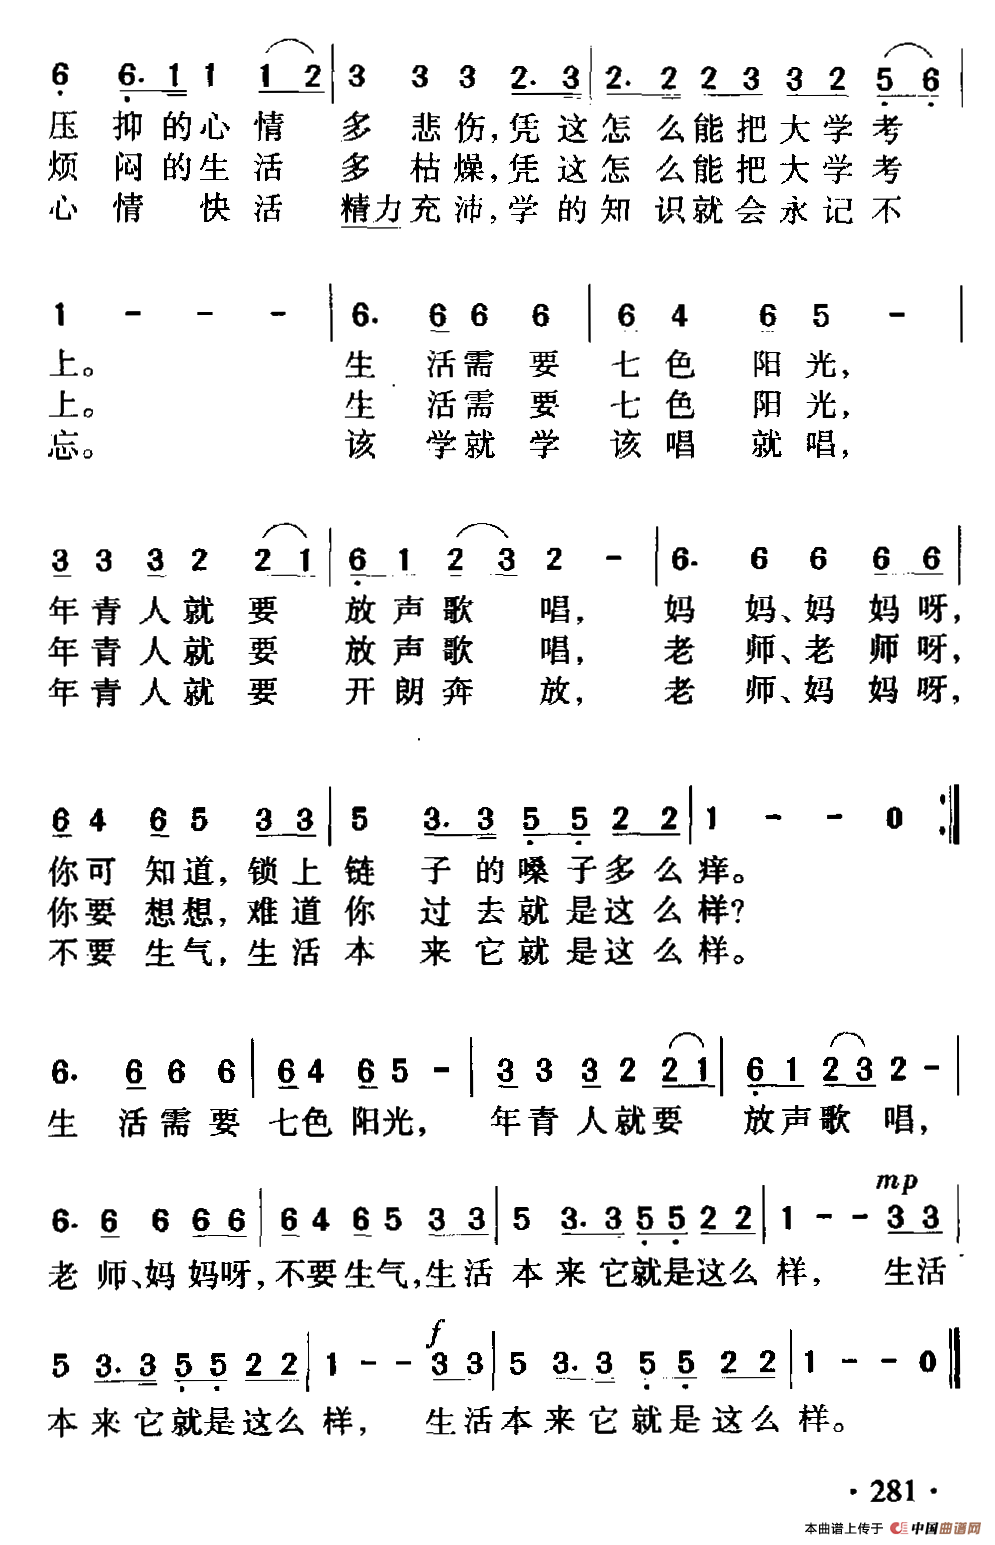 6 6. 1 1 1 2 | 3 3 3 2. 3 | 2. 2 2 3 3 2 5 6 |
压抑的心情多悲伤,凭这怎么能把大学考
烦闷的生活多枯燥,凭这怎么能把大学考
心情快活精力充沛,学的知识就会永记不
1 - - - | 6. 6 6 6 | 6 4 6 5 - |
上。生活需要七色阳光,
上。生活需要七色阳光,
忘。该学就学该唱就唱,
3 3 3 2 2 1 | 6 1 2 3 2 - | 6. 6 6 6 6 |
年青人就要放声歌唱,妈妈、妈妈呀,
年青人就要放声歌唱,老师、老师呀,
年青人就要开朗奔放,老师、妈妈呀,
6 4 6 5 3 3 | 5 3. 3 5 5 2 2 | 1 - - 0 :‖
你可知道,锁上链子的嗓子多么痒。
你要想想,难道你过去就是这么样?
不要生气,生活本来它就是这么样。
6. 6 6 6 | 6 4 6 5 - | 3 3 3 2 2 1 | 6 1 2 3 2 - |
生活需要七色阳光,年青人就要放声歌唱,
mp
6. 6 6 6 6 | 6 4 6 5 3 3 | 5 3. 3 5 5 2 2 | 1 - - 3 3 |
老师、妈妈呀,不要生气,生活本来它就是这么样,生活
f
5 3. 3 5 5 2 2 | 1 - - 3 3 | 5 3. 3 5 5 2 2 | 1 - - 0 ‖
本来它就是这么样,生活本来它就是这么样。
· 281 ·
本曲谱上传于 中国曲谱网